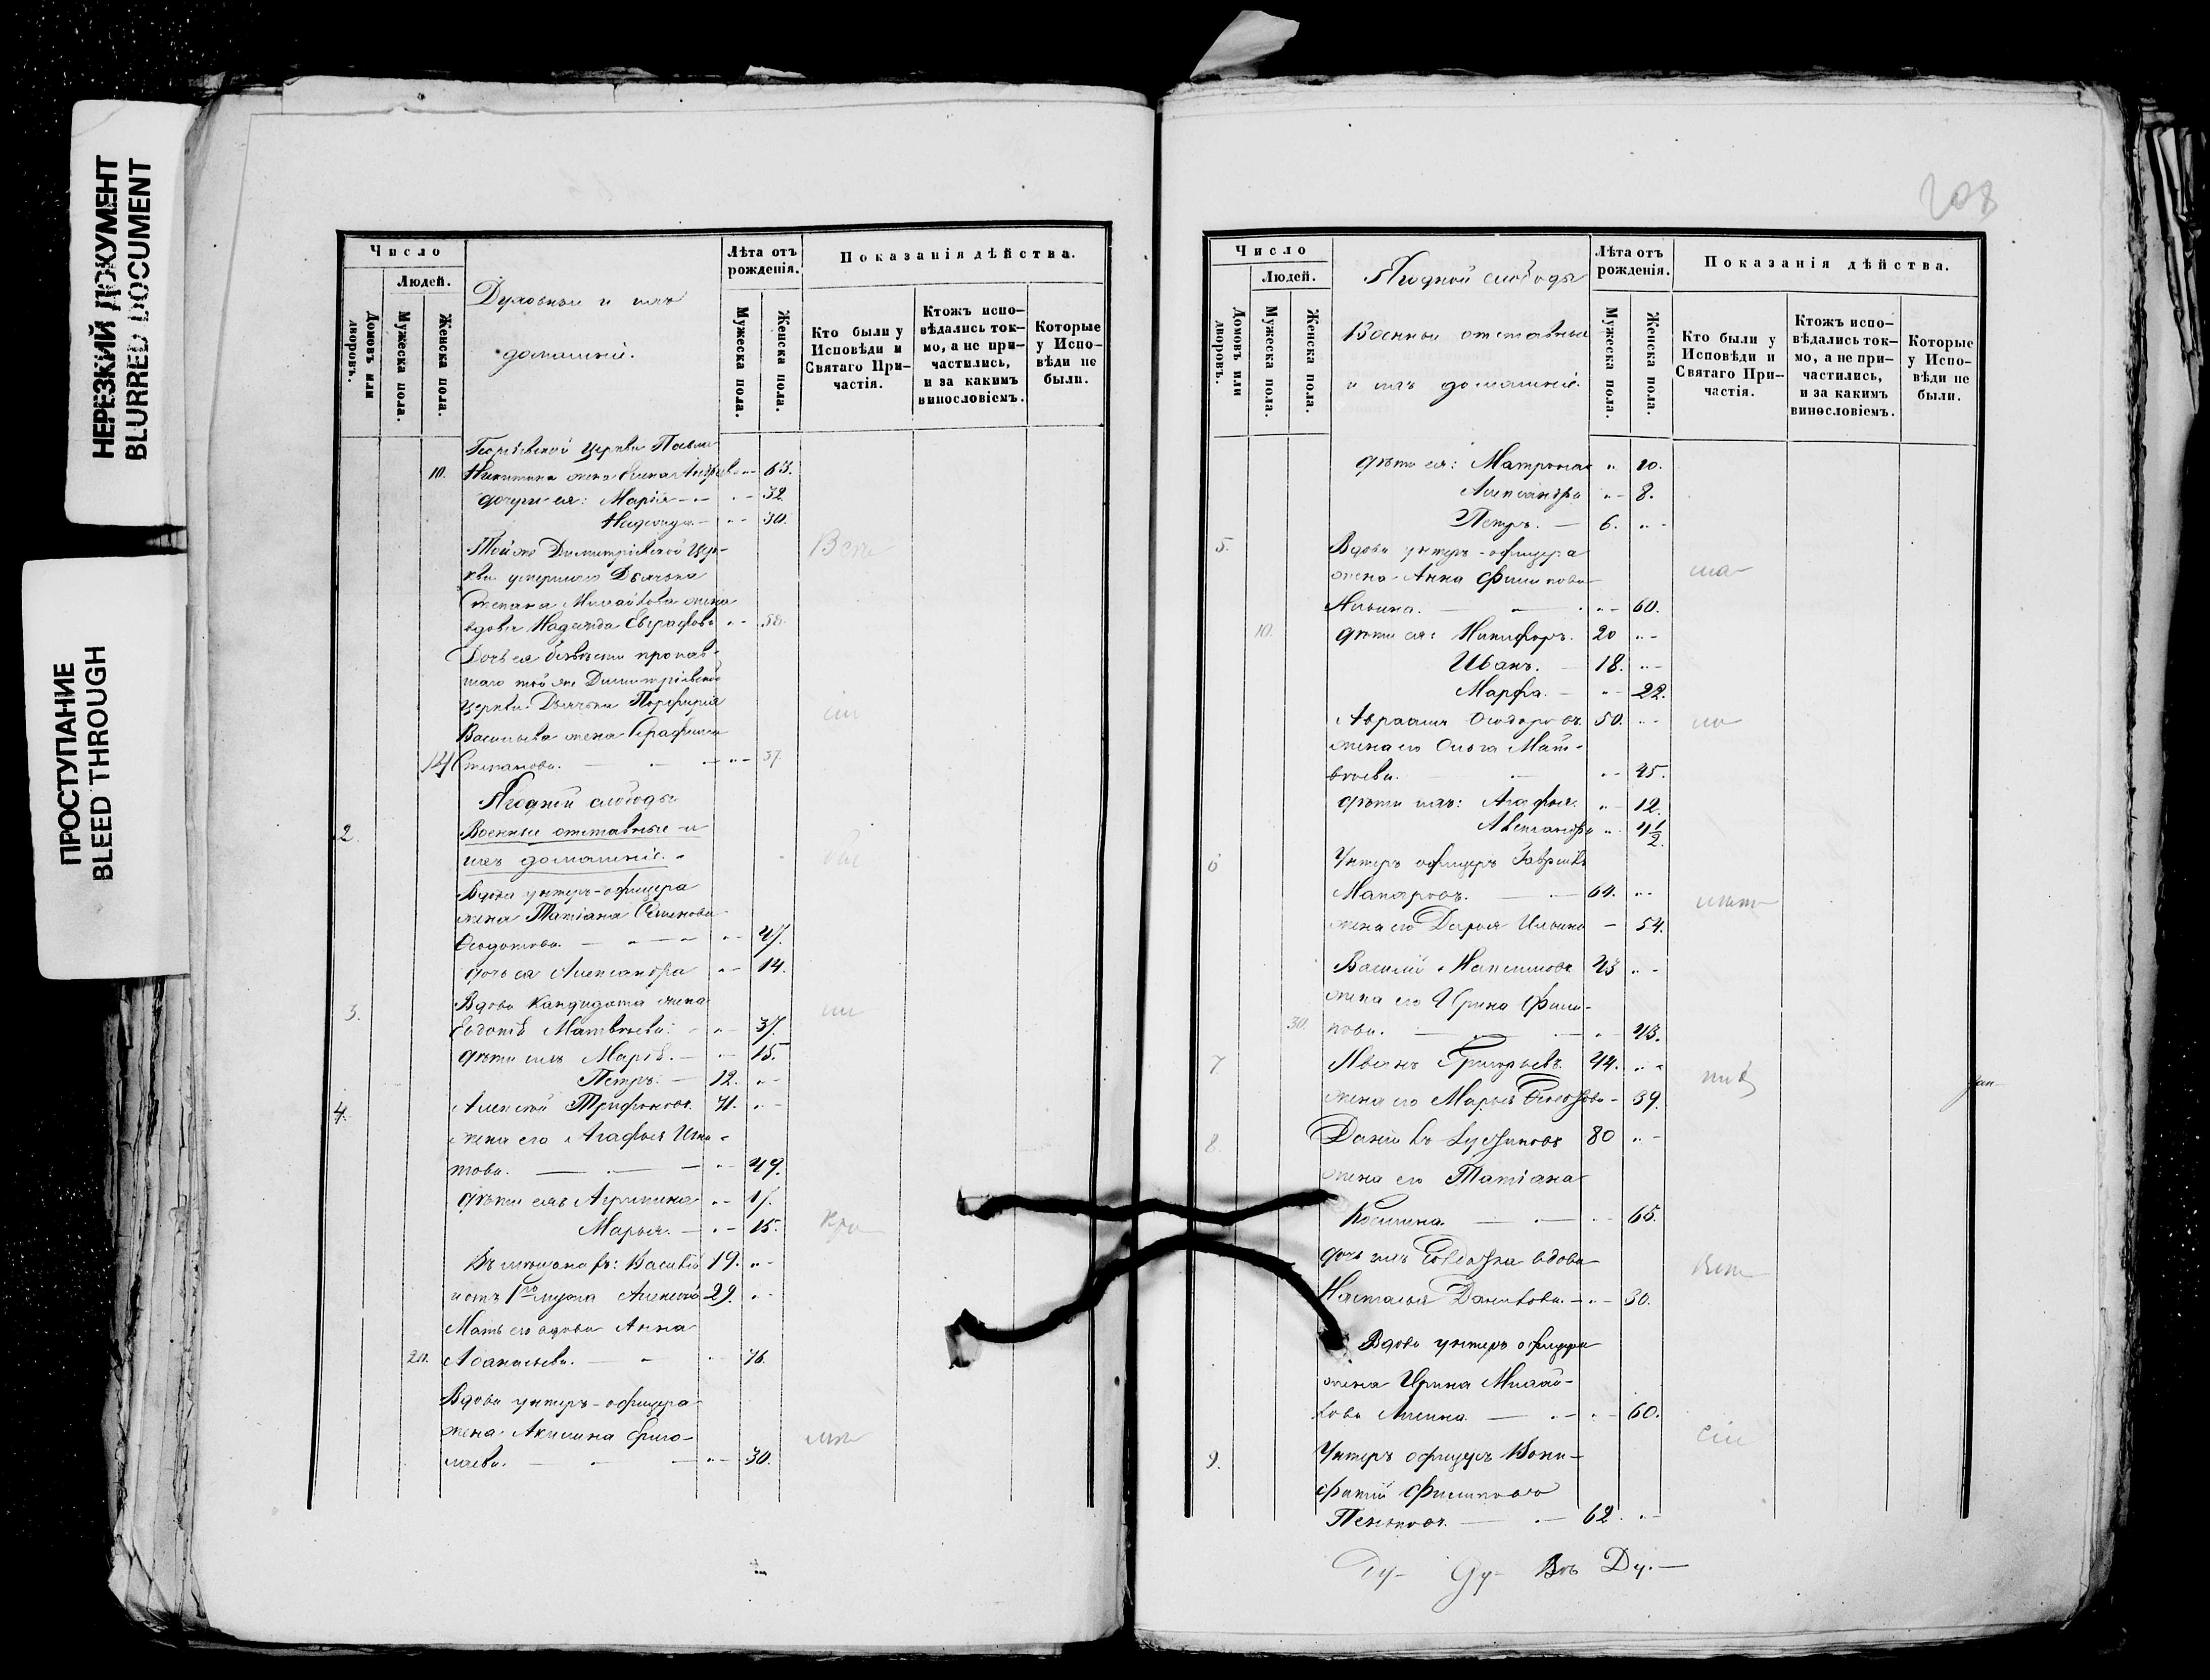 НЕРЕЗКИЙ ДОКУМЕНТ
BLURRED DOCUMENT
ПРОСТУПАНИЕ
BLEED THROUGH
Число
Людей.
Домовъ или дворовъ.
Мужеска пола.
Женска пола.
Духовныи и ихъ
домашніе.
Лѣта отъ рожденія.
Мужеска пола.
Женска пола.
Показанія дѣйства.
Кто были у Исповѣди и Святаго При-частія.
Ктожъ испо-вѣдались ток-мо, а не при-частились, и за какимъ винословіемъ.
Которые у Испо-вѣди не были.
Георгіевской церкви Павла
10. Никитина жена Елена 63.
дочери ея: Марія 32.
Надежда 30.
Той же Димитріевской Цер-
кви умершаго Дьячка
Степана Михайлова жена
вдова Надежда Евграфова 58.
Дочь ея безвѣсти пропав-
шаго той же Димитріевской
церкви Дьячка Порфирія
Васильева жена Серафима
14 Степанова. 37.
Ягодной слободы
2. Военные отставные и
ихъ домашніе.
Вдова унтеръ-офицера
жена Татіана Семенова
Ѳедотова. 47.
дочь ея Александра 14.
3. Вдова Кандидата жена
Матвѣева. 37.
дѣти ихъ Марія. 15.
Петръ. 12.
4. Алексей Трифоновъ. 41.
жена его Агафья Игна-
това. 49.
дѣти ихъ Агрипина 17.
Марья. 15.
Василій 19.
Алексей 29.
Мать его вдова Анна
20. Аѳанасьева. 76.
Вдова унтеръ-офицера
жена Акилина Ермо-
лаева. 30.
208
Число
Людей.
Домовъ или дворовъ.
Мужеска пола.
Женска пола.
Ягодной слободы
Военныи отставные
и ихъ домашніе.
Лѣта отъ рожденія.
Мужеска пола.
Женска пола.
Показанія дѣйства.
Кто были у Исповѣди и Святаго При-частія.
Ктожъ испо-вѣдались ток-мо, а не при-частились, и за какимъ винословіемъ.
Которые у Испо-вѣди не были.
дѣти ея: Матрона 10.
Александра 8.
Петръ. 6.
5. Вдова унтеръ-офицера
жена Анна Филипова
Ильина. 60.
10. дѣти ея: Никифоръ. 20
Иванъ. 18.
Марфа. 22.
Авраамъ Ѳеодоровъ. 50.
жена его Ольга Мат-
вѣева. 45.
дѣти ихъ: Агафья. 12.
Александра 4 1/2
6 Унтеръ офицеръ Гавріилъ
Макаровъ. 64.
жена его Дарья Ильина 54.
Василій Максимовъ 43
жена его Ирина Фили-
30. пова. 43.
7 Иванъ Григорьевъ. 44.
жена его Марья 39.
8. Даніилъ 80
жена его Татіана
Космина. 65.
дочь ихъ вдова
Настасья Данилова. 30.
Вдова унтеръ офицера
жена Ирина Михай-
лова 60.
9. Унтеръ офицеръ Вони-
фатій Филиповъ
Пеньковъ. 62.
Ду- Ду- Ду.